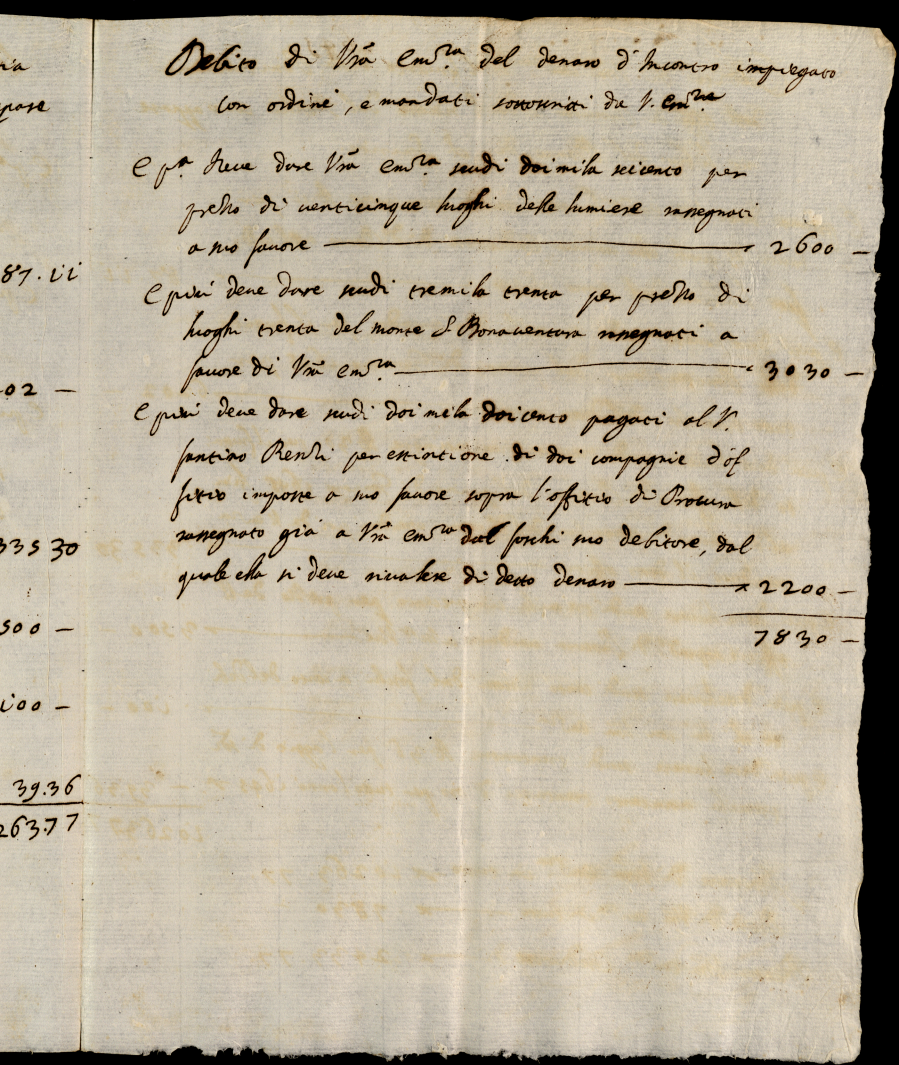 ria
pase
87.11
02 —
335 30
500 —
100 —
39.36
263.77
Debito di Vrã Em.ra del denaro d'Incontro impiegato
con ordini, e mandati sottoscritti da V. Em.za
E p.a deve dare Vrã Em.ra scudi doi mila seicento per
prezzo di venticinque luoghi delle lumiere rassegnati
a suo favore — 2600 —
E più deve dare scudi tremila trenta per prezzo di
luoghi trenta del monte S Bonaventura rassegnati a
favore di Vrã Em.ra — 3030 —
E più deve dare scudi doi mila doicento pagati al S.
santino Renzi per estintione di doi compagnie d'of
fitio imposte a suo favore sopra l'offitio di Procura
rassegnato già a Vrã Em.ra dal foschi suo debitore, dal
quale ella si deve rivalere di detto denaro — 2200 —
7830 —